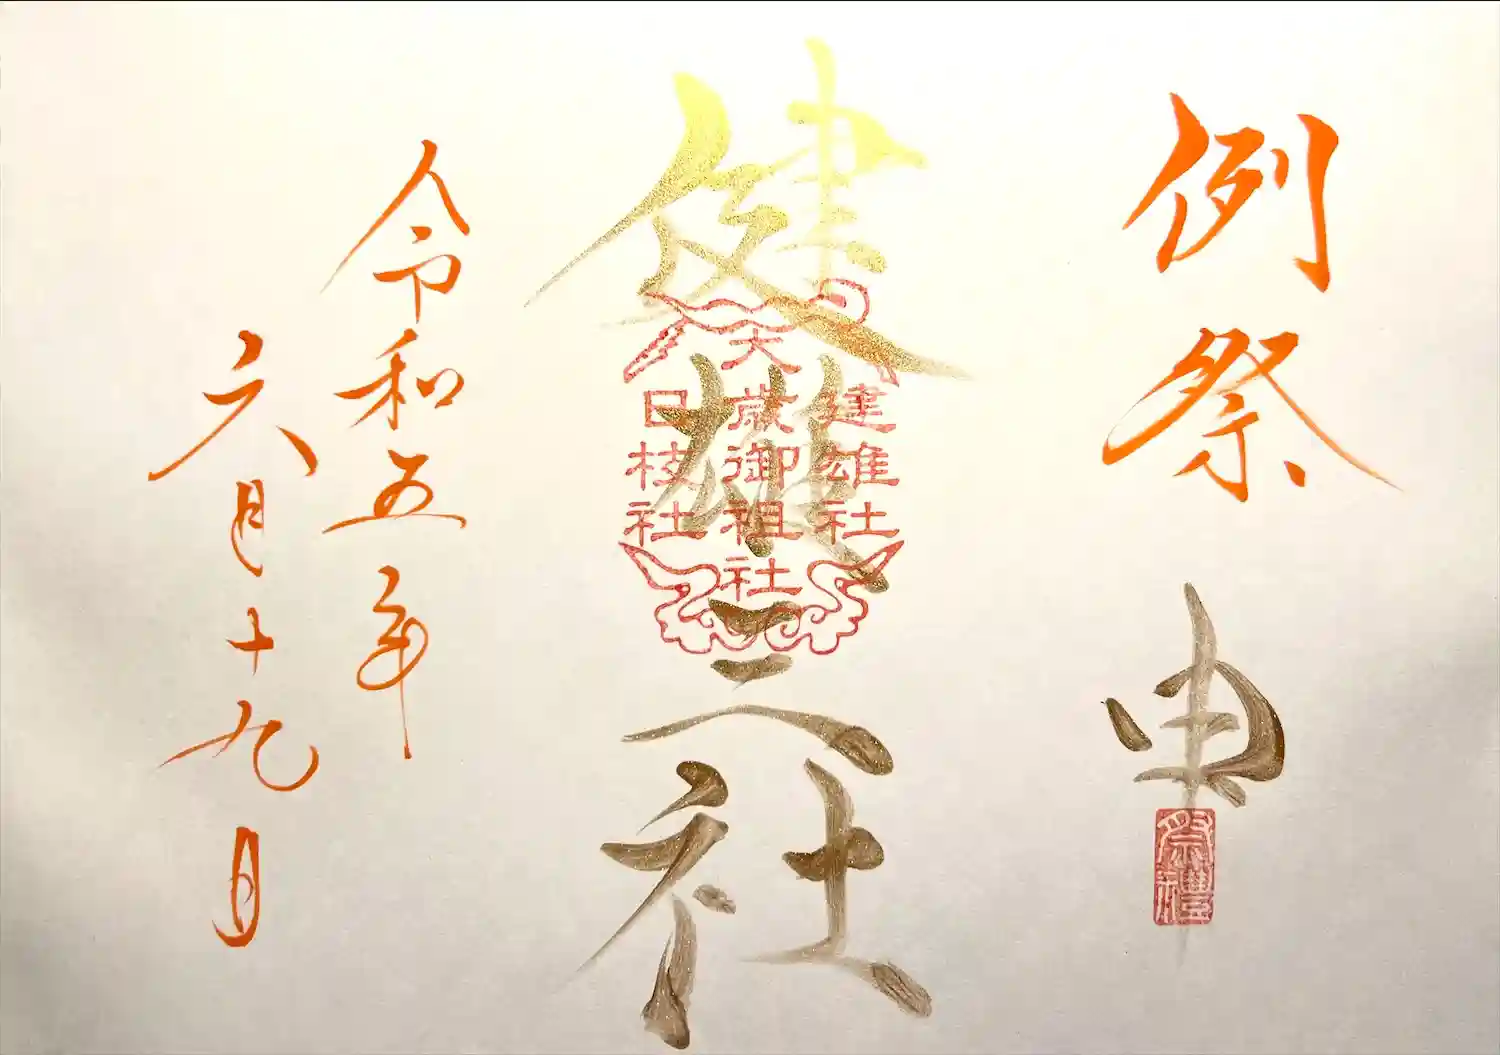 例祭
申
祭禮
健雄三社
建雄社
大歳御祖社
日枝社
令和五年
六月十九日